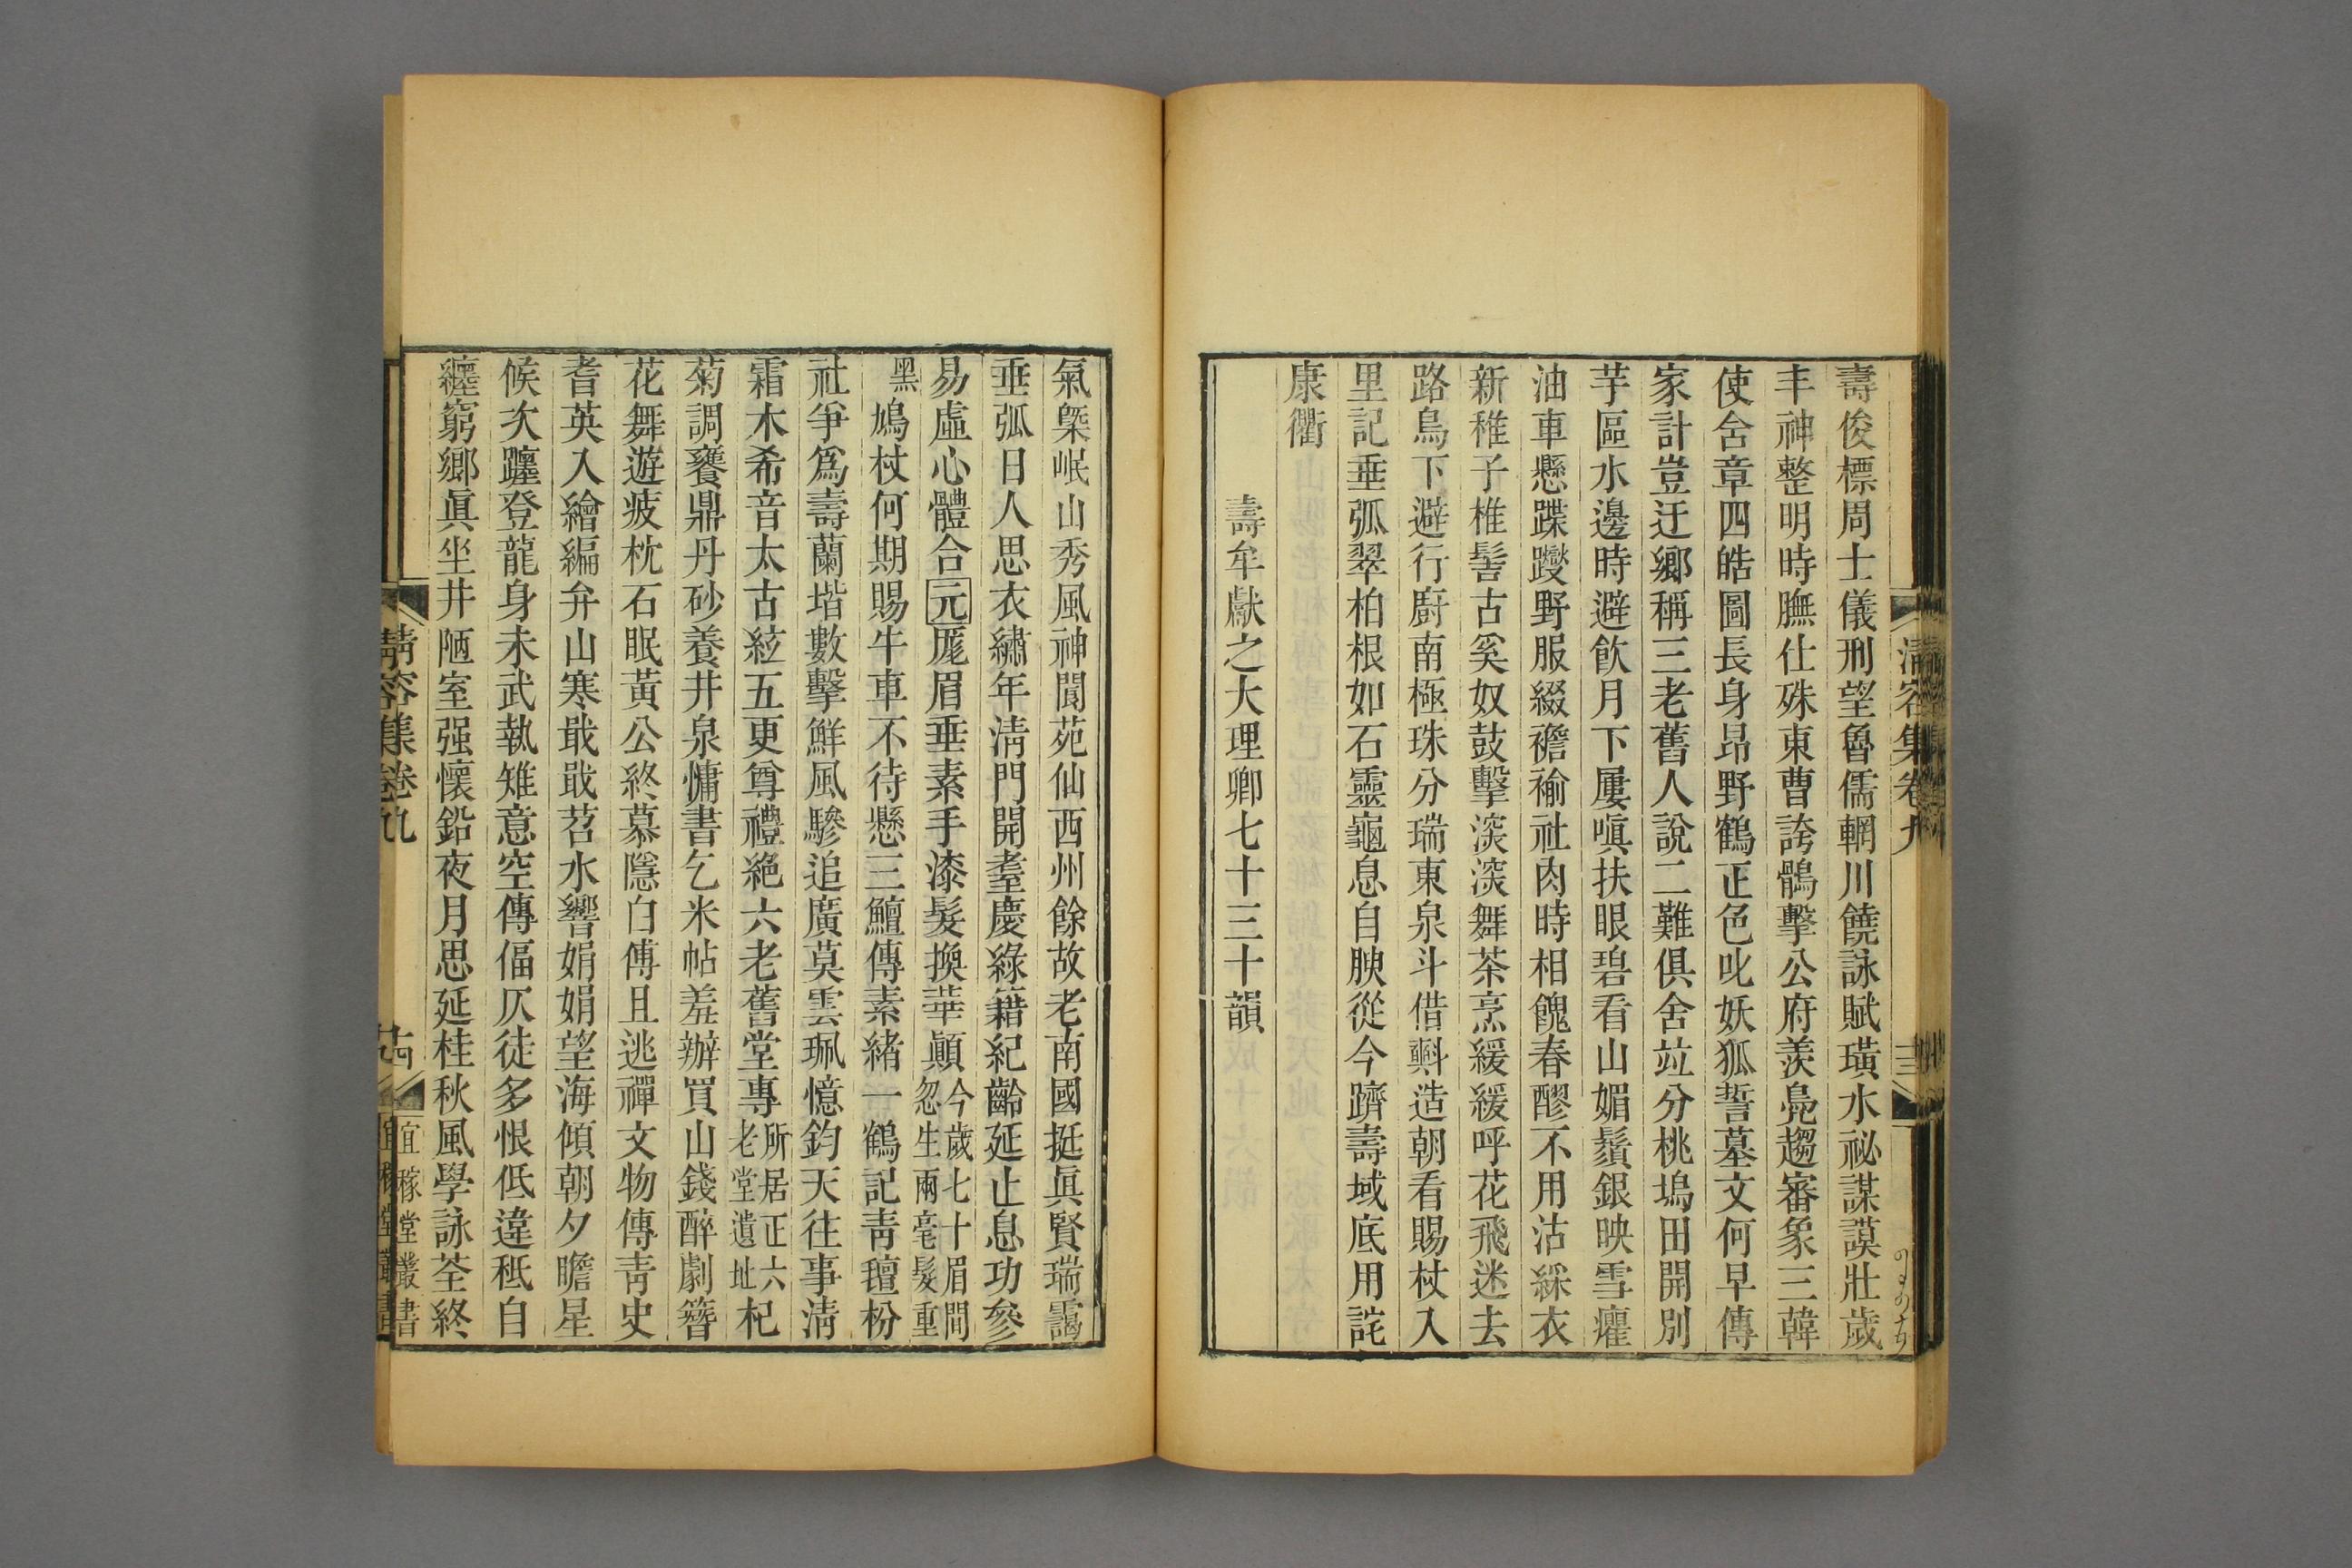 壽俊標周士儀刑望魯儒輞川饒詠賦璜水祕謀謨壯歲
丰神整明時膴仕殊東曹誇鶻擊公府羨鳧趨審象三韓
使舍章四皓圖長身昂野鶴正色叱妖狐誓墓文何早傳
家計豈迂鄉稱三老舊人說二難俱舍竝分桃塢田開別
芋區水邊時避飲月下屢嗔扶眼碧看山媚鬚銀映雪癯
油車懸蹀躞野服綴襜褕社肉時相餽春醪不用沽綵衣
新稚子椎髻古奚奴鼓擊深深舞茶烹緩緩呼花飛迷去
路鳥下避行廚南極珠分瑞東泉斗借㪺造朝看賜杖入
里記垂弧翠柏根如石靈龜息自腴從今躋壽域底用詫
康衢
壽牟獻之大理卿七十三十韻
清容集卷九
氣槩岷山秀風神閬苑仙西州餘故老南國挺眞賢瑞靄
垂弧日人思衣繡年淸門開耋慶綠籍紀齡延止息功參
易虛心體合元厖眉垂素手漆髮換華顚今歲七十眉間忽生兩毫髮重
黑鳩杖何期賜牛車不待懸三鱣傳素緒一鶴記靑氊枌
社爭爲壽蘭堦數擊鮮風驂追廣莫雲珮憶鈞天往事淸
霜木希音太古絃五更尊禮絶六老舊堂專所居正六老堂遺址杞
菊調饔鼎丹砂養井泉慵書乞米帖羞辦買山錢醉劇簪
花舞遊疲枕石眠黃公終慕隱白傅且逃禪文物傳靑史
耆英入繪編弁山寒戢戢苕水響娟娟望海傾朝夕瞻星
候次躔登龍身未武執雉意空傳偪仄徒多恨低違秪自
纏窮鄉眞坐井陋室强懷鉛夜月思延桂秋風學詠荃終
清容集卷九
十四
宜稼堂叢書